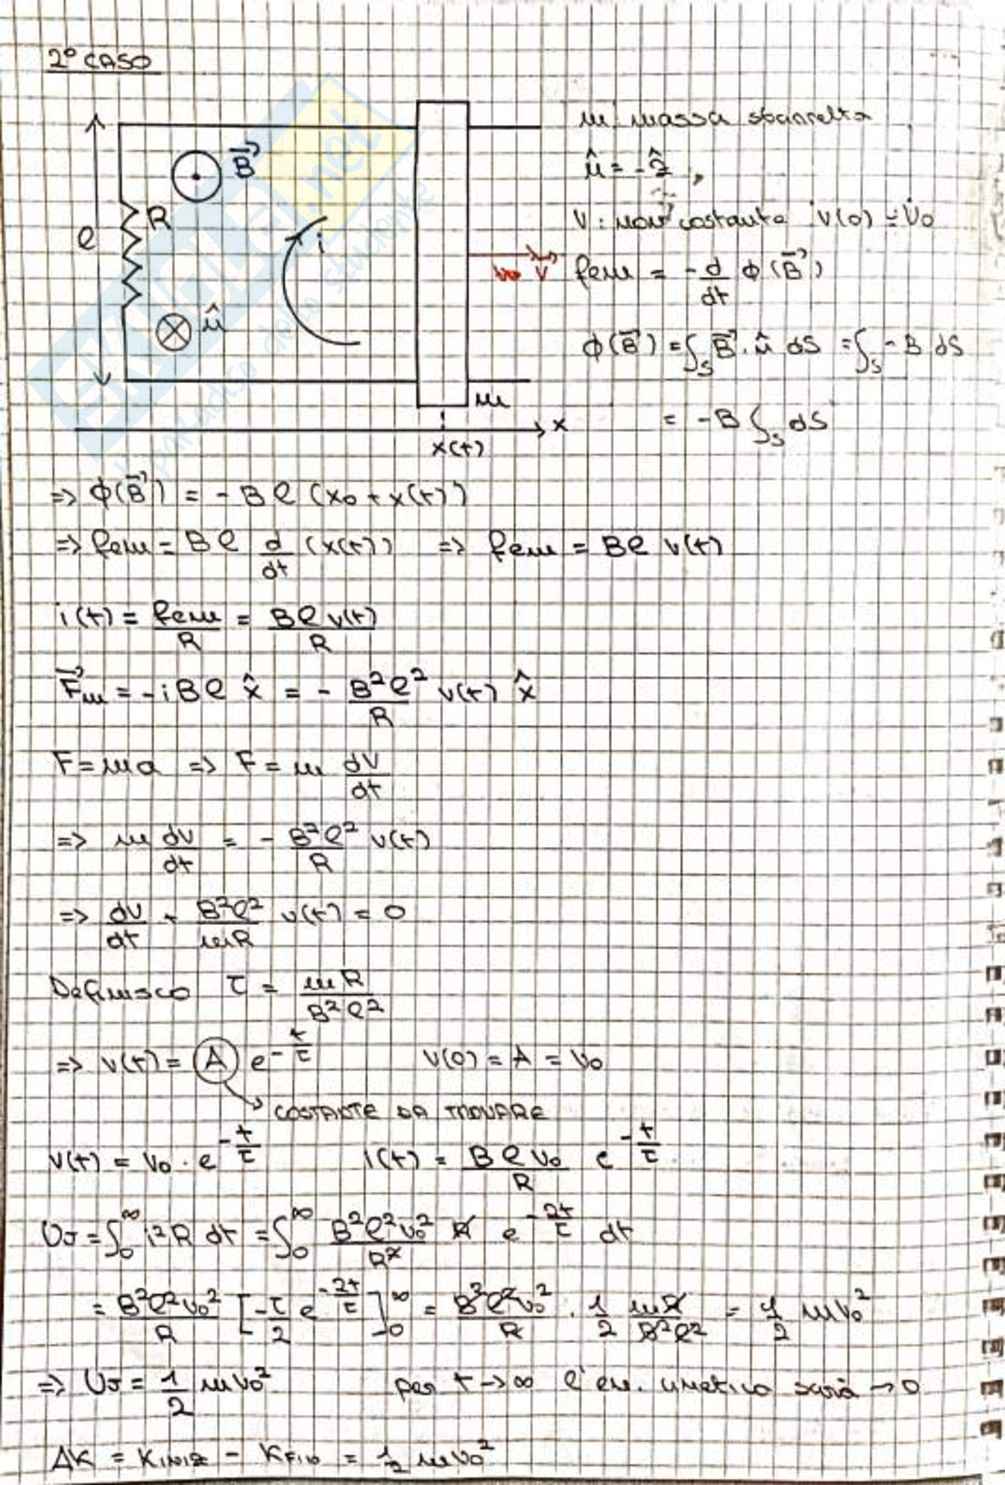 2° CASO
m: massa sbarretta
B⃗
û = -ẑ
R
l
i
V: non costante v(0) = V₀
V
fem = -d/dt ϕ(B⃗)
û
ϕ(B⃗) = ∫ₛ B⃗ · û dS = ∫ₛ - B dS
m
x
= -B ∫ₛ dS
x(t)
=> ϕ(B⃗) = - B l (x₀ + x(t))
=> fem = B l d/dt (x(t)) => fem = B l v(t)
i(t) = fem/R = B l v(t)/R
F⃗ₘ = -i B l x̂ = - B² l²/R v(t) x̂
F = ma => F = m dV/dt
=> m dv/dt = - B² l²/R v(t)
=> dv/dt + B² l²/mR v(t) = 0
Definisco τ = mR/B² l²
=> v(t) = A e^(-t/τ) v(0) = A = V₀
COSTANTE DA TROVARE
v(t) = V₀ · e^(-t/τ) i(t) = B l V₀/R e^(-t/τ)
UJ = ∫₀^∞ i² R dt = ∫₀^∞ B² l² V₀²/R² R e^(-2t/τ) dt
= B² l² V₀²/R [-τ/2 e^(-2t/τ)]₀^∞ = B² l² V₀²/R · 1/2 mR/B² l² = 1/2 m V₀²
=> UJ = 1/2 m V₀² per t → ∞ l'en. cinetica sarà → 0
ΔK = K INIZ - K FIN = 1/2 m V₀²